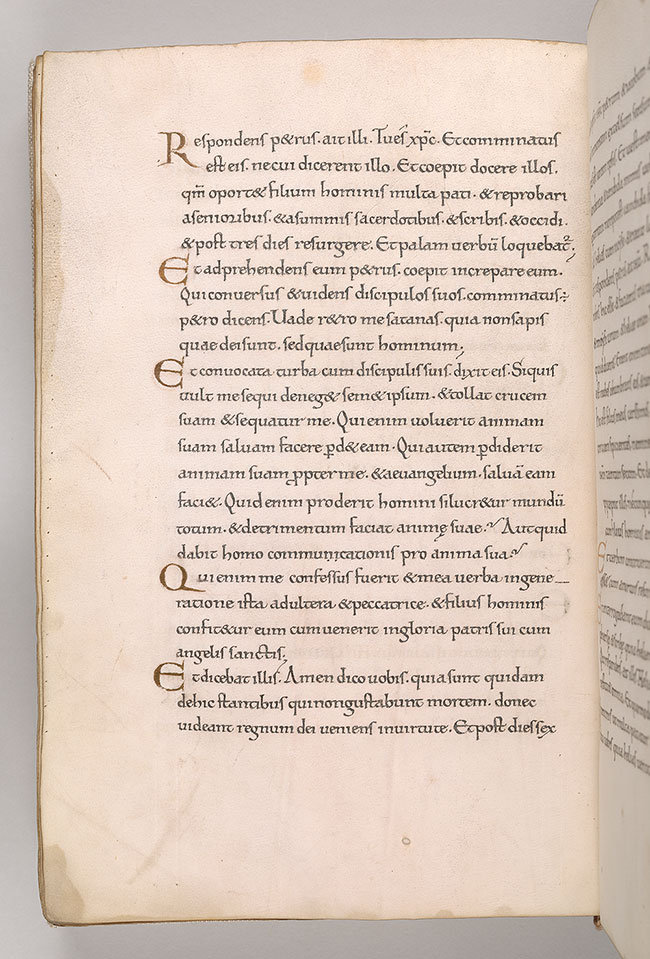 Respondens p&rus. ait illi. Tu es xp̄c. Et comminatus
est eis. ne cui dicerent illo. Et coepit docere illos.
qm̄ oport& filium hominis multa pati. & reprobari
a senioribus. & a summis sacerdotibus. & scribis. & occidi.
& post tres dies resurgere. Et palam uerbū loquebat᷒;
Et adprehendens eum p&rus. coepit increpare eum.
Qui conversus & uidens discipulos suos. comminatus÷
p&ro dicens. Uade r&ro me satanas. quia non sapis
quae dei sunt. sed quae sunt hominum;
Et convocata turba cum discipulis suis. dixit eis. Siquis
uult me sequi deneg& sem&ipsum. & tollat crucem
suam & sequatur me. Qui enim voluerit animam
suam saluam facere p̱d& eam. Qui autem p̱diderit
animam suam ꝓpter me. & aeuangelium. saluā eam
faci&. Quid enim proderit homini si lucr&ur mundū
totum. & detrimentum faciat animę suae. Aut quid
dabit homo communicationis pro anima sua.
Qui enim me confessus fuerit & mea uerba in gene
ratione ista adultera & peccatrice. & filius hominis
confit&ur eum cum uenerit in gloria patris sui cum
angelis sanctis;
Et dicebat illis. Amen dico uobis. quia sunt quidam
de hic stantibus qui non gustabunt mortem. donec
uideant regnum dei ueniens in uirtute. Et post dies sex